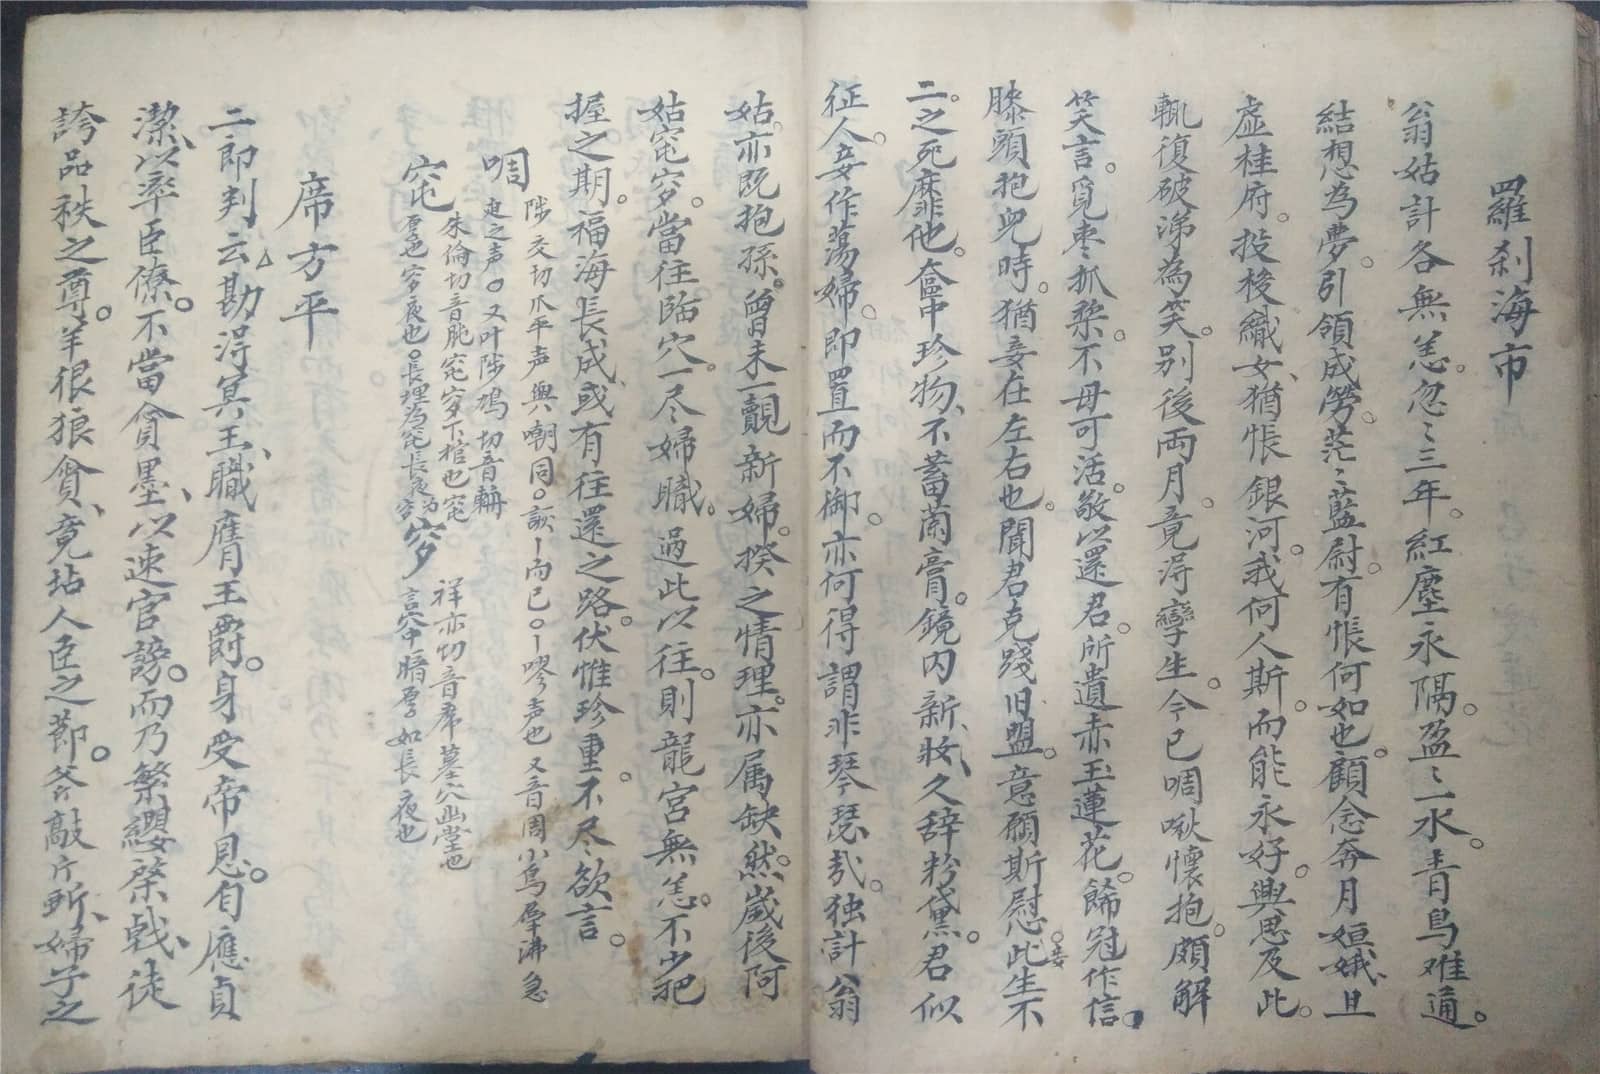 羅刹海市
翁姑計各無恙。忽〻三年。紅塵永隔。盈〻一水。青鳥难通。
結想為夢。引領成勞。茫〻藍尉。有恨何如也。顧念奔月姮娥。且
虛桂府。投梭織女、猶悵銀河。我何人斯。而能永好。興思及此。
輒復破涕為笑。别後両月。竟淂孿生。今已啁啾懷抱。頗解
笑言。覓枣抓棃。不母可活。敬以還君。所遺赤玉蓮花。餙冠作信。
膝頭抱兒時。猶妾在左右也。聞君克踐旧盟。意願斯慰。妾此生不
二。之死靡他。奩中珍物、不蓄蘭膏。鏡内新妝、久辞粉黛。君似
征人。妾作蕩婦。即置而不御。亦何得謂非琴瑟㢤。独計翁
姑。亦既抱孫。曾未一覿新婦。揆之情理。亦属缺然。歲後阿
姑窀穸。當往臨穴。一尽婦職。過此以往。則龍宮無恙。不少把
握之期。福海長成、或有往還之路。伏惟珍重。不尽欲言。
啁 陟交切爪平声與嘲同。詼丨而已。丨嘐声也又音周小鳥羣沸急
走之声。又叶陟鳩切音輈
窀 朱倫切音肫窀穸下棺也窀
厚也穸夜也。長埋為窀長夜為穸
穸 祥亦切音席墓穴幽堂也
壙中暗孠如長夜也
席方平
二郎判云勘淂冥王、職膺王爵。身受帝恩。自應貞
潔、以率臣僚。不當貪墨、以速官謗。而乃繁纓棨戟、徒
誇品秩之尊。羊很狼貪、竟玷人臣之節。斧敲斤斫、婦子之